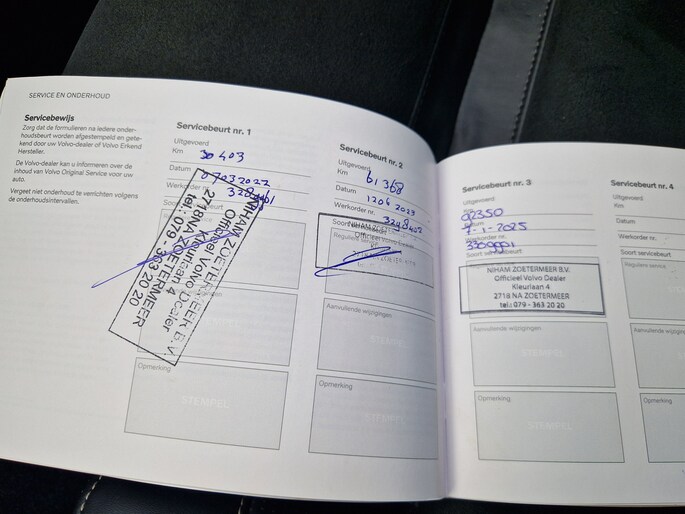 SERVICE EN ONDERHOUD
Servicebewijs
Zorg dat de formulieren na iedere onder-
houdsbeurt worden afgestempeld en gete-
kend door uw Volvo-dealer of Volvo Erkend
Hersteller.
De Volvo-dealer kan u informeren over de
inhoud van Volvo Original Service voor uw
auto.
Vergeet niet onderhoud te verrichten volgens
de onderhoudsintervallen.
Servicebeurt nr. 1
Uitgevoerd
Km 30 403
Datum 07032022
Werkorder nr.
Soort servicebeurt
NIHAM ZOETERMEER B.V.
Officieel Volvo Dealer
Kleurlaan 4
2718NA ZOETERMEER
tel.: 079 - 363 20 20
Opmerking
STEMPEL
Servicebeurt nr. 2
Uitgevoerd
Km 61 368
Datum 1206 2023
Werkorder nr. 3248402
Reguliere service
Aanvullende wijzigingen
STEMPEL
Opmerking
STEMPEL
Servicebeurt nr. 3
Uitgevoerd
Km 92350
Datum 7-1-2025
Werkorder nr.
Soort servicebeurt
NIHAM ZOETERMEER B.V.
Officieel Volvo Dealer
Kleurlaan 4
2718 NA ZOETERMEER
tel.: 079 - 363 20 20
Aanvullende wijzigingen
STEMPEL
Opmerking
STEMPEL
Servicebeurt nr. 4
Uitgevoerd
Km
Datum
Werkorder nr.
Soort servicebeurt
Reguliere service
Aanvullende wijzigingen
Opmerking